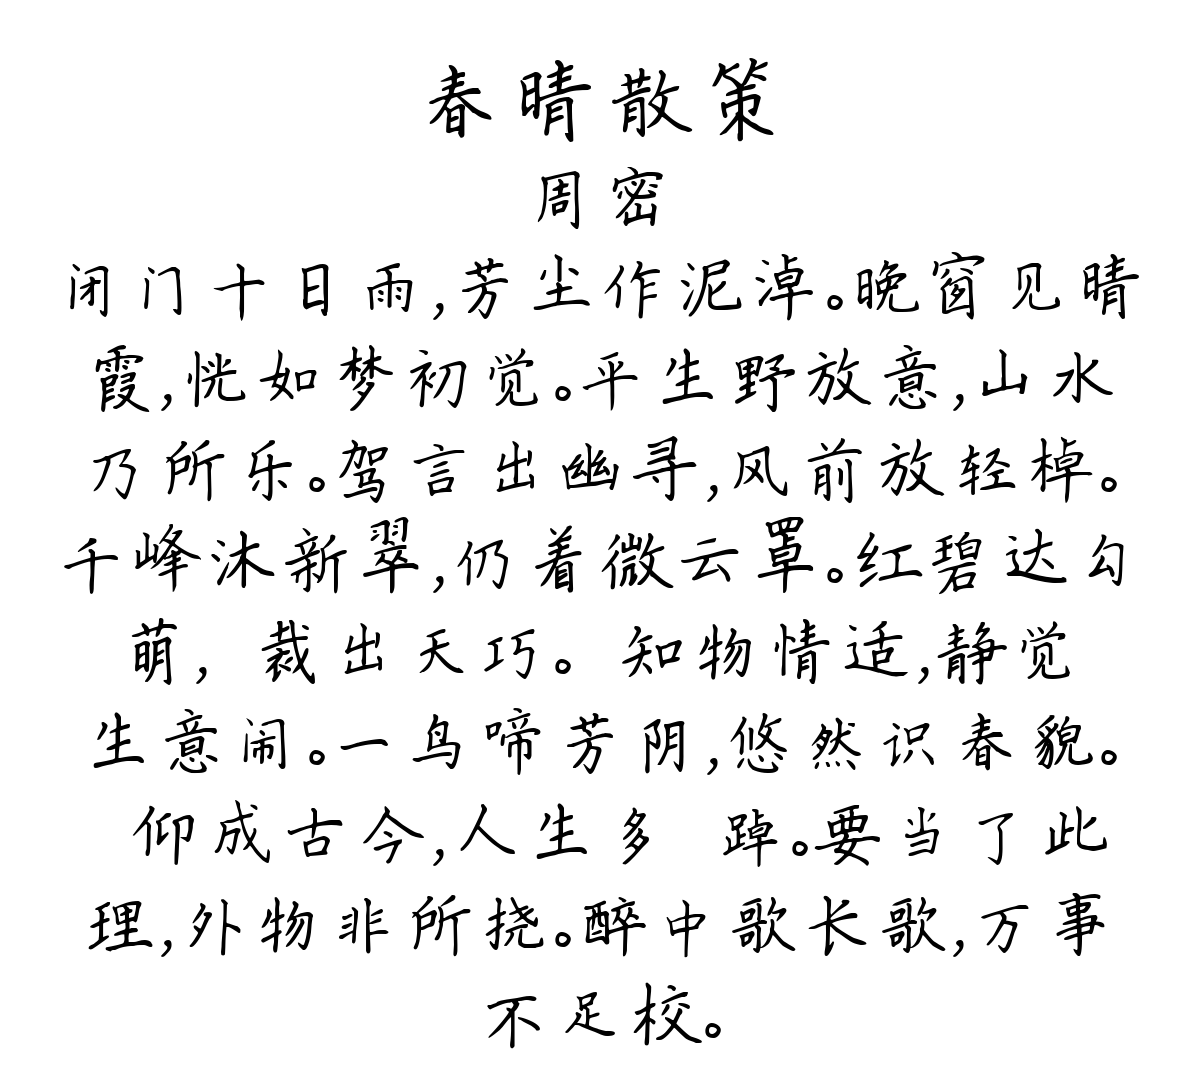 春晴散策
周密
闭门十日雨,芳尘作泥淖。晚窗见晴
霞,恍如梦初觉。平生野放意,山水
乃所乐。驾言出幽寻,风前放轻棹。
千峰沐新翠,仍着微云罩。红碧达勾
萌,裁出天巧。知物情适,静觉
生意闹。一鸟啼芳阴,悠然识春貌。
仰成古今,人生多 踔。要当了此
理,外物非所挠。醉中歌长歌,万事
不足校。